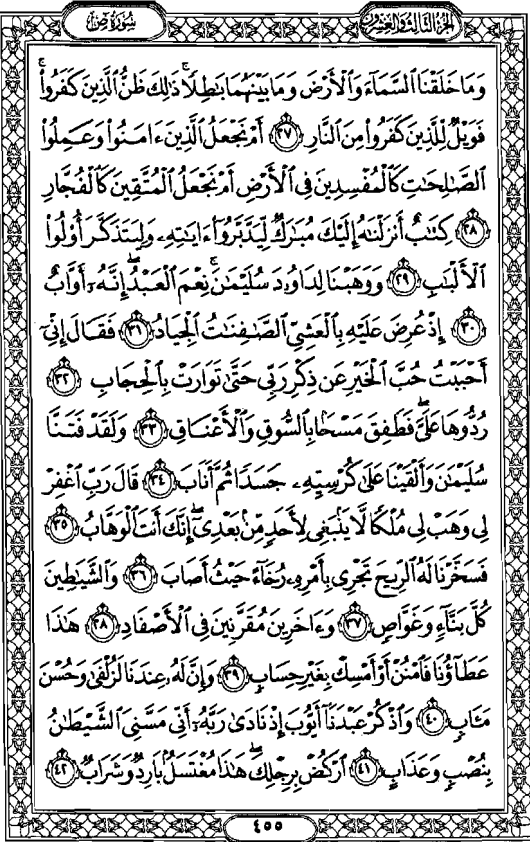 سُورَةُ صٓ
الجُزءُ الثَّالِثُ وَالعِشرُون
وَمَا خَلَقْنَا ٱلسَّمَآءَ وَٱلْأَرْضَ وَمَا بَيْنَهُمَا بَٰطِلًا ۚ ذَٰلِكَ ظَنُّ ٱلَّذِينَ كَفَرُوا۟ ۚ
فَوَيْلٌ لِّلَّذِينَ كَفَرُوا۟ مِنَ ٱلنَّارِ ٢٧ أَمْ نَجْعَلُ ٱلَّذِينَ ءَامَنُوا۟ وَعَمِلُوا۟
ٱلصَّٰلِحَٰتِ كَٱلْمُفْسِدِينَ فِى ٱلْأَرْضِ أَمْ نَجْعَلُ ٱلْمُتَّقِينَ كَٱلْفُجَّارِ
٢٨ كِتَٰبٌ أَنزَلْنَٰهُ إِلَيْكَ مُبَٰرَكٌ لِّيَدَّبَّرُوٓا۟ ءَايَٰتِهِۦ وَلِيَتَذَكَّرَ أُو۟لُوا۟
ٱلْأَلْبَٰبِ ٢٩ وَوَهَبْنَا لِدَاوُۥدَ سُلَيْمَٰنَ ۚ نِعْمَ ٱلْعَبْدُ ۖ إِنَّهُۥٓ أَوَّابٌ
٣٠ إِذْ عُرِضَ عَلَيْهِ بِٱلْعَشِىِّ ٱلصَّٰفِنَٰتُ ٱلْجِيَادُ ٣١ فَقَالَ إِنِّىٓ
أَحْبَبْتُ حُبَّ ٱلْخَيْرِ عَن ذِكْرِ رَبِّى حَتَّىٰ تَوَارَتْ بِٱلْحِجَابِ ٣٢
رُدُّوهَا عَلَىَّ ۖ فَطَفِقَ مَسْحًۢا بِٱلسُّوقِ وَٱلْأَعْنَاقِ ٣٣ وَلَقَدْ فَتَنَّا
سُلَيْمَٰنَ وَأَلْقَيْنَا عَلَىٰ كُرْسِيِّهِۦ جَسَدًا ثُمَّ أَنَابَ ٣٤ قَالَ رَبِّ ٱغْفِرْ
لِى وَهَبْ لِى مُلْكًا لَّا يَنۢبَغِى لِأَحَدٍ مِّنۢ بَعْدِىٓ ۖ إِنَّكَ أَنتَ ٱلْوَهَّابُ ٣٥
فَسَخَّرْنَا لَهُ ٱلرِّيحَ تَجْرِى بِأَمْرِهِۦ رُخَآءً حَيْثُ أَصَابَ ٣٦ وَٱلشَّيَٰطِينَ
كُلَّ بَنَّآءٍ وَغَوَّاصٍ ٣٧ وَءَاخَرِينَ مُقَرَّنِينَ فِى ٱلْأَصْفَادِ ٣٨ هَٰذَا
عَطَآؤُنَا فَٱمْنُنْ أَوْ أَمْسِكْ بِغَيْرِ حِسَابٍ ٣٩ وَإِنَّ لَهُۥ عِندَنَا لَزُلْفَىٰ وَحُسْنَ
مَـَٔابٍ ٤٠ وَٱذْكُرْ عَبْدَنَآ أَيُّوبَ إِذْ نَادَىٰ رَبَّهُۥٓ أَنِّى مَسَّنِىَ ٱلشَّيْطَٰنُ
بِنُصْبٍ وَعَذَابٍ ٤١ ٱرْكُضْ بِرِجْلِكَ ۖ هَٰذَا مُغْتَسَلٌۢ بَارِدٌ وَشَرَابٌ ٤٢
٤٥٥